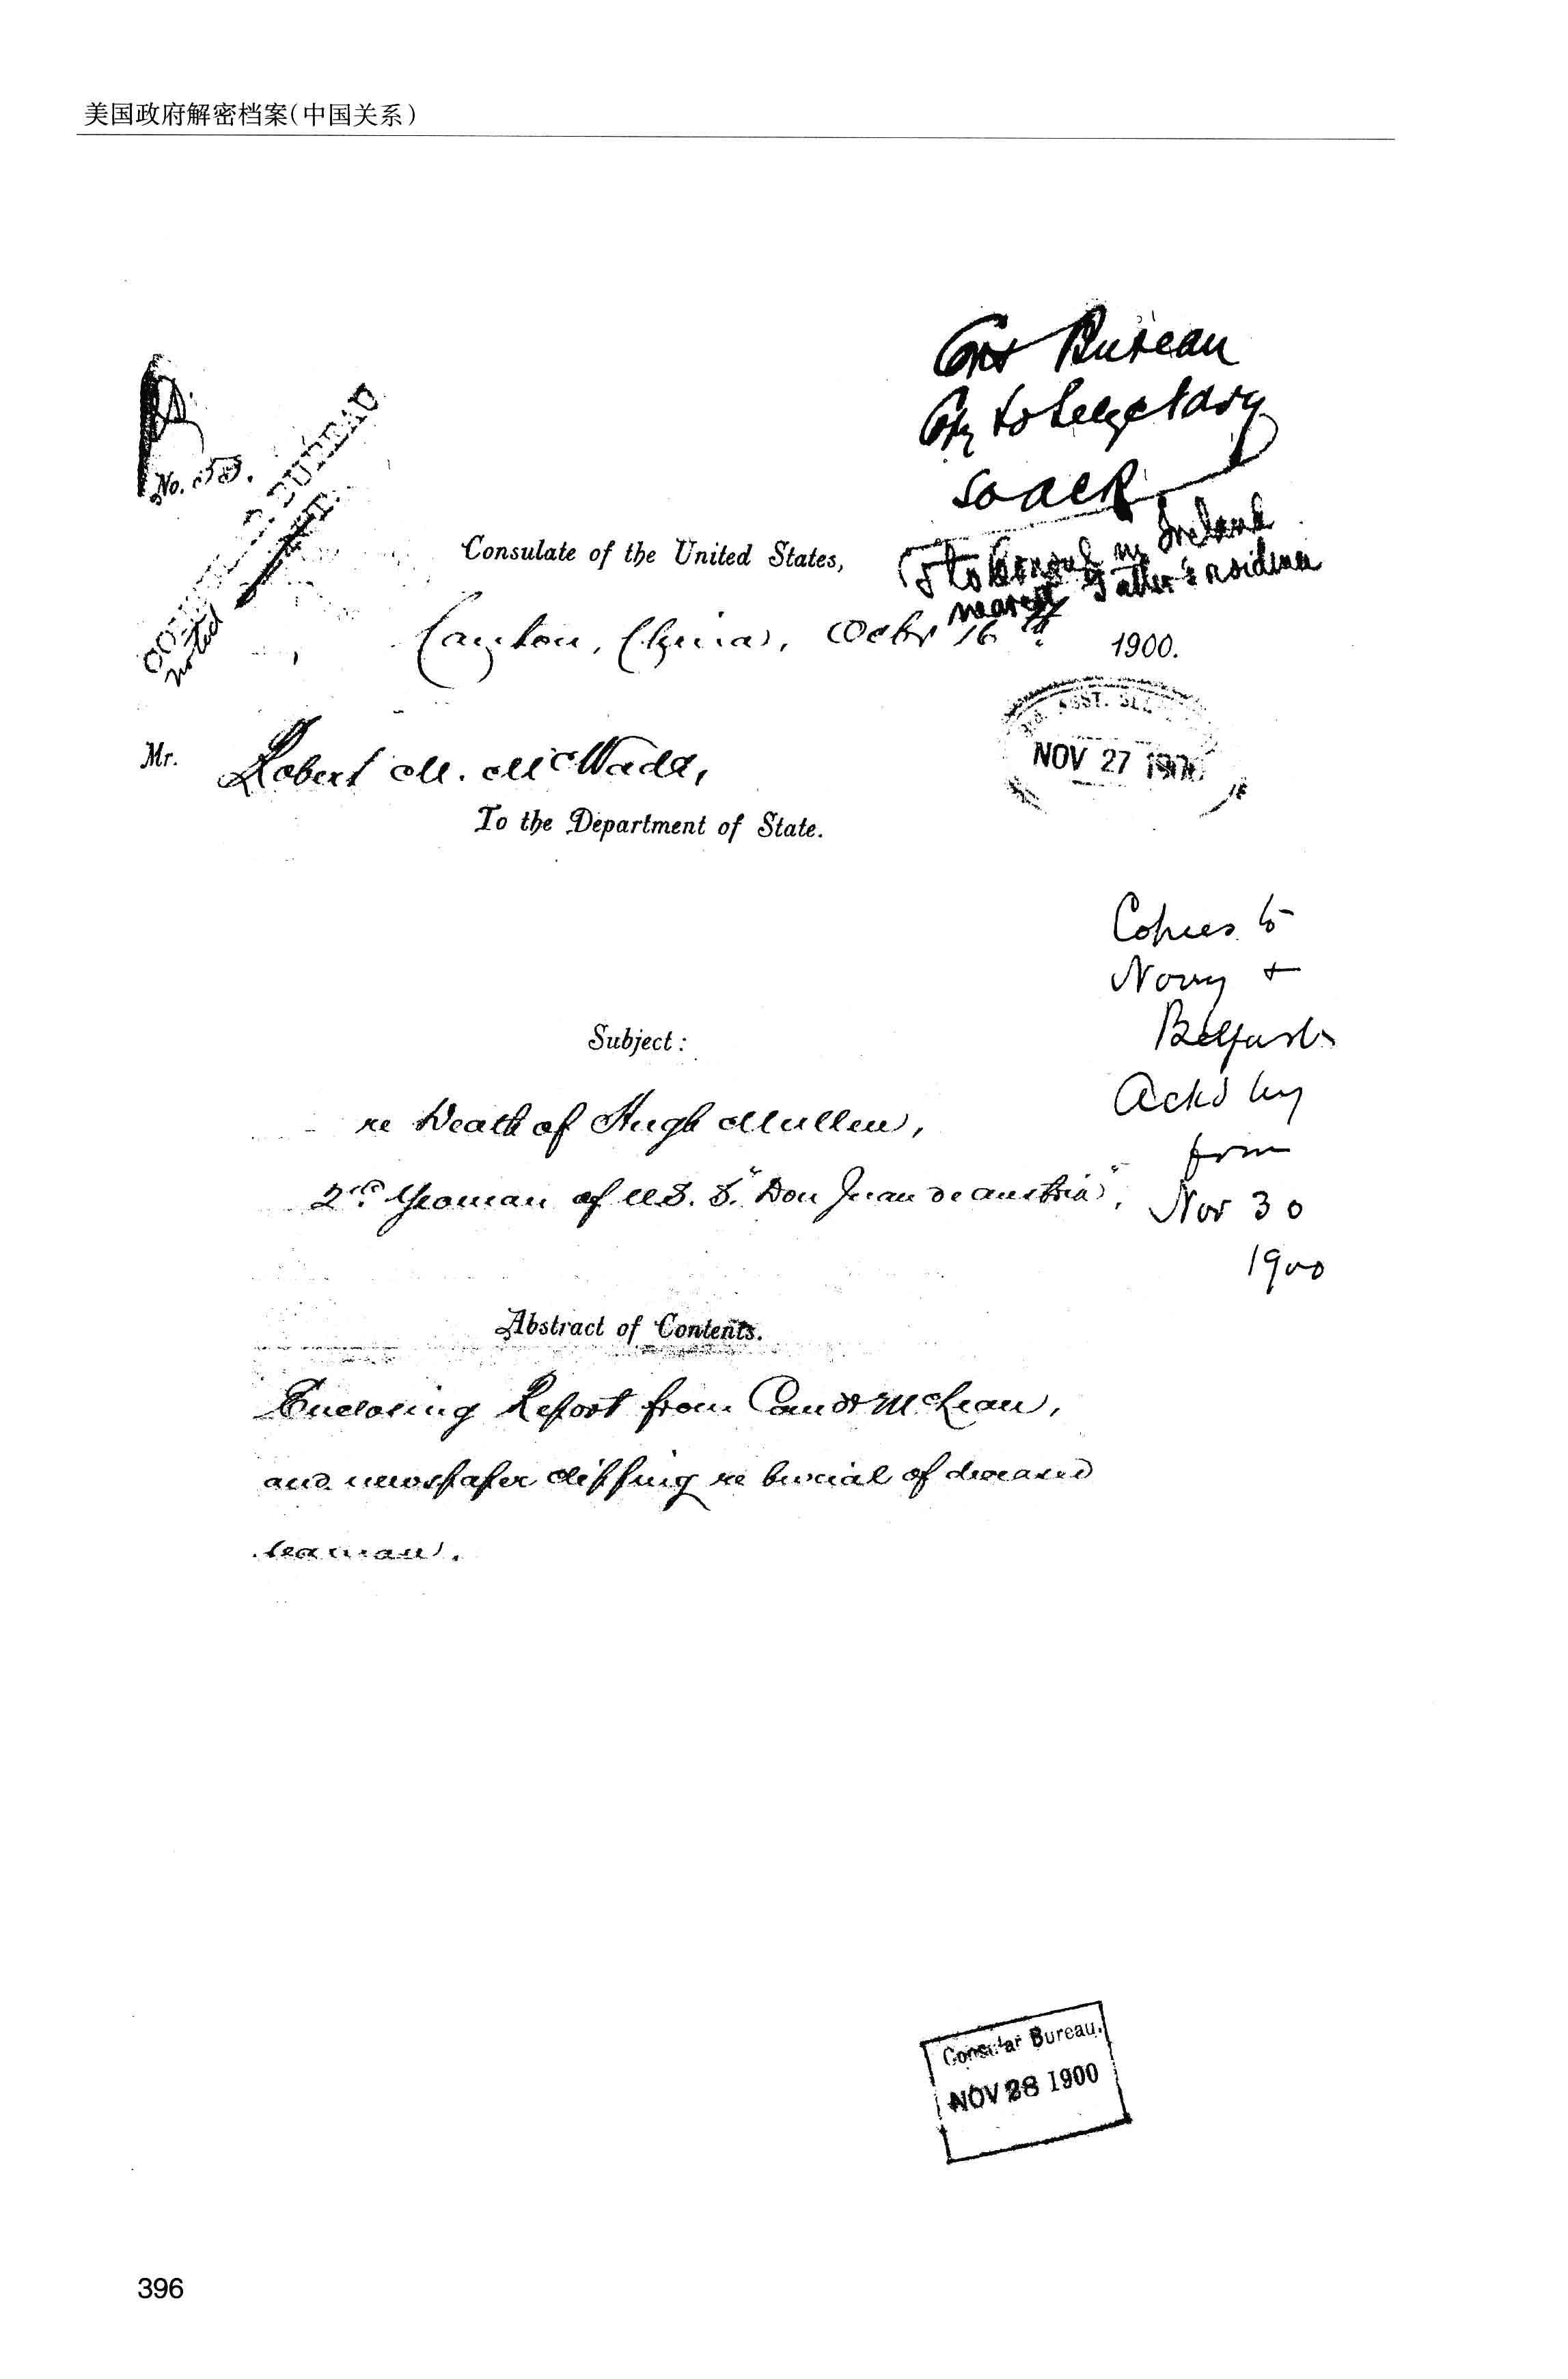 美国政府解密档案(中国关系)
Bureau
Cpy to Secy of Navy
so ack
to Consul in Ireland
nearest Father's residence
No. 53.
BUREAU
noted
Consulate of the United States,
Canton, China, Octbr 16th 1900.
NOV 27 1900
Mr. Robert M. McWade,
To the Department of State.
Copies to
Navy +
Belfast
Ackd by
form
Nov 30
1900
Subject:
re Death of Hugh Mullen,
2nd Yeoman of U.S.S. "Don Juan de Austria",
Abstract of Contents.
Enclosing Report from Comdr McLean,
and newspaper clipping re burial of deceased
seaman.
Consular Bureau.
NOV 28 1900
396